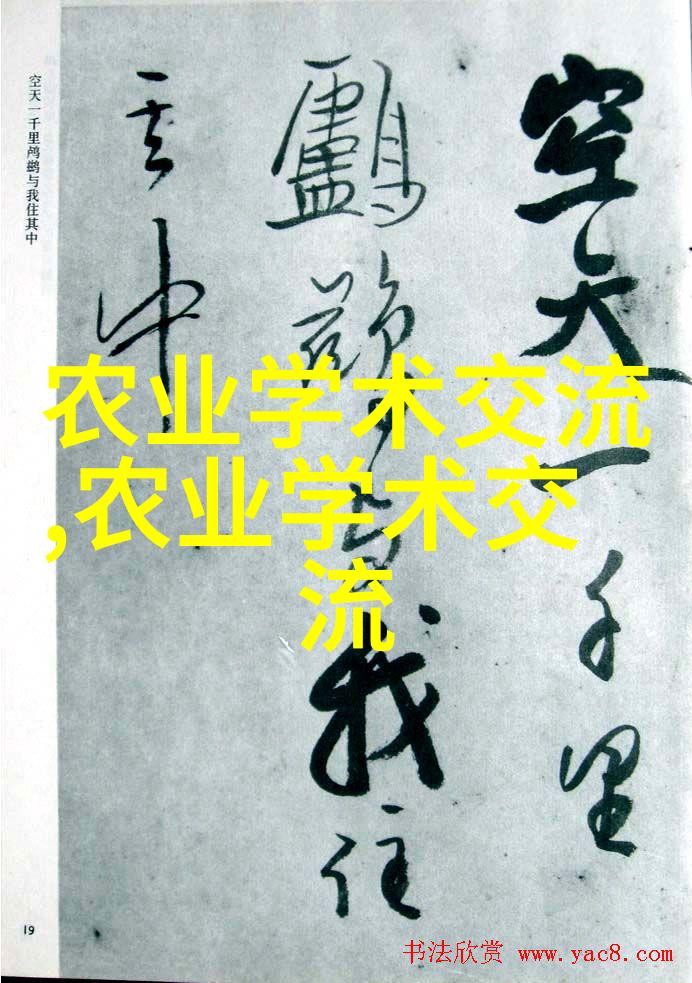 空天一千里
鸕鷀与我住
其中
空天一千里鸬鹚与我住其中
农业学术交流
,农业学术交
流
19
书法欣赏 www.yac8.com